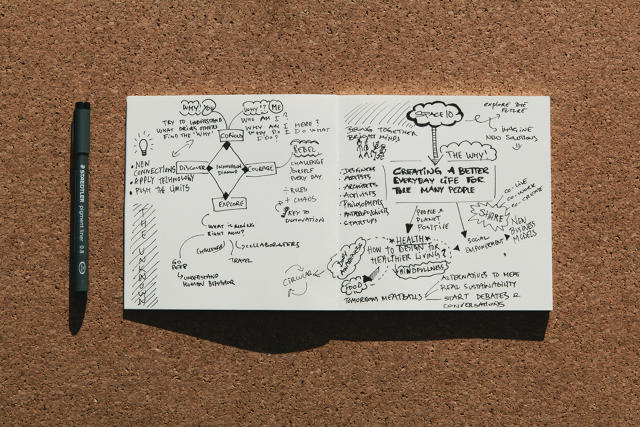 STAEDTLER pigment liner 0.8
WHY? YOU
TRY TO UNDERSTAND
WHAT DRIVES OTHERS
FIND THE "WHY"
WHY? ME
WHO AM I?
WHY AM I HERE?
WHY DO I DO WHAT
I DO?
DISCOVER
COURAGE
EXPLORE
• NEW
CONNECTIONS
• APPLY TECHNOLOGY
• PUSH THE LIMITS
REBEL
CHALLENGE
YOURSELF
EVERY DAY
÷ RULES
+ CHAOS
KEY TO
INNOVATION
THE UNKNOWN
WHAT IS BEING
RIGHT NOW?
CHALLENGE
COLLABORATERS
TRAVEL
GO
DEEP
UNDERSTAND
HUMAN BEHAVIOR
CIRCULAR
SPACE10
EXPLORE THE
FUTURE
IMAGINE
NEW SOLUTIONS
BRING TOGETHER
BRIGHT MINDS
THE WHY!
CREATING A BETTER
EVERYDAY LIFE FOR
THE MANY PEOPLE
• DESIGNERS
• ARTISTS
• ARCHITECTS
• ACTIVISTS
• PHILOSOPHERS
• ANTHROPOLOGISTS
• STARTUPS
CO-LIVE
CO-WORK
CO-CREATE
SHARE
NEW
BUSINESS
MODELS
PEOPLE &
PLANET
POSITIVE
SOCIAL
EMPOWERMENT
HEALTH
HOW TO DESIGN FOR
HEALTHIER LIVING?
MINDFULLNESS
FOOD
TOMORROWS MEATBALLS
ALTERNATIVES TO MEAT
REAL SUSTAINABILITY
START DEBATES &
CONVERSATIONS